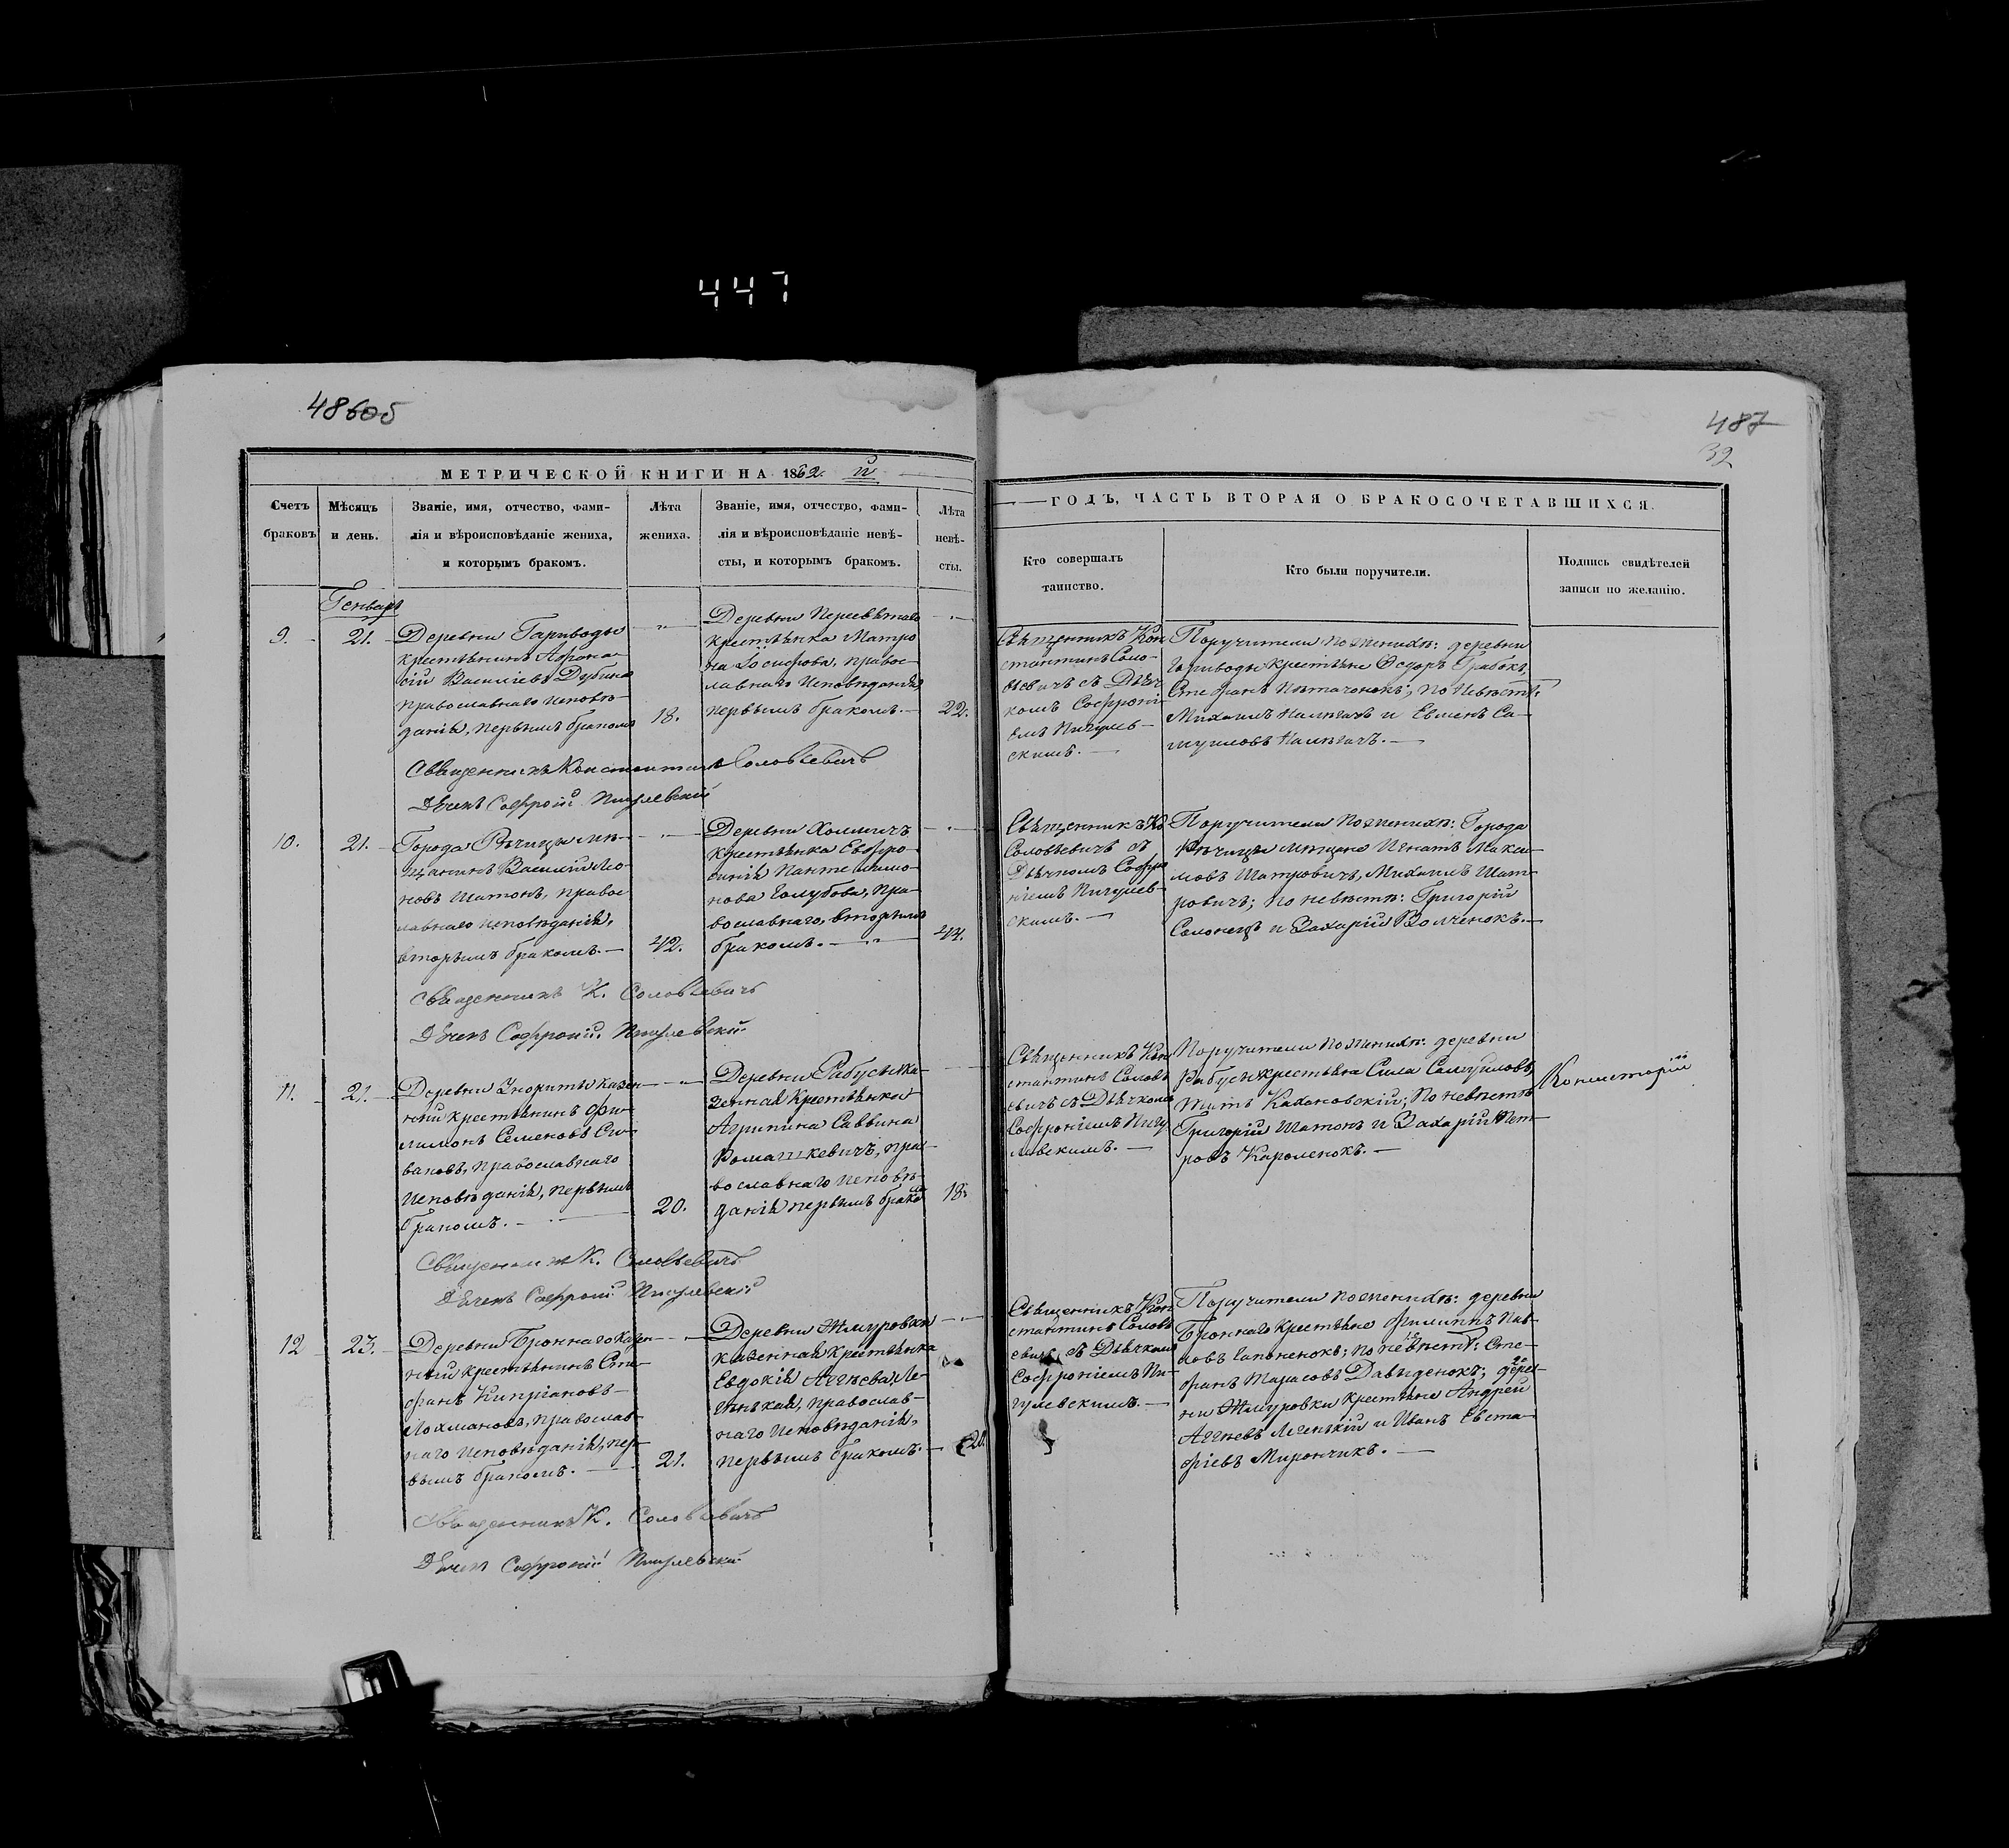 447
486об
487
32
МЕТРИЧЕСКОЙ КНИГИ НА 1862. й
ГОДЪ, ЧАСТЬ ВТОРАЯ О БРАКОСОЧЕТАВШИХСЯ.
Счетъ браковъ
Мѣсяцъ и день.
Званіе, имя, отчество, фами-
лія и вѣроисповѣданіе жениха,
и которымъ бракомъ.
Лѣта
жениха.
Званіе, имя, отчество, фами-
лія и вѣроисповѣданіе невѣ-
сты, и которымъ бракомъ.
Лѣта
невѣ-
сты.
Кто совершалъ
таинство.
Кто были поручители.
Подпись свидѣтелей
записи по желанію.
Генварь
9.
21.
Деревни Гариводы
крестьянинъ Афана-
сій Василіевъ Дубина
православнаго исповѣ-
данія, первымъ бракомъ
18.
Деревни
крестьянка Матро
на Іосифова, правос-
лавнаго исповѣданія,
первымъ бракомъ.
22.
Священникъ Кон
стантинъ Соло-
вьевичъ съ Дьяч
комъ Софроні-
емъ Пигулев-
скимъ.
Поручители по женихѣ: деревни
Гариводы крестьяне Ѳедоръ
Стефанъ по невѣстѣ:
Михаилъ и Евменъ Са-
муиловъ
Священникъ Константинъ Соловьевичъ
Дьячекъ Софроній Пигулевскій
10.
21.
Города Рѣчицы мѣ-
щанинъ Василій Ло-
новъ Шатонъ, правос
лавнаго исповѣданія,
вторымъ бракомъ.
42.
Деревни Холмичъ
крестьянка Евфро-
синія Пантелеимо-
нова Голубова, пра-
вославнаго, вторымъ
бракомъ.
44.
Священникъ Ко
Соловьевичъ съ
Дьячкомъ Софро
ніемъ Пигулев-
скимъ.
Поручители по женихѣ: Города
Рѣчицы мѣщане Игнатъ Макси-
мовъ Шатровичъ, Михаилъ Шат-
ровичъ; по невѣстѣ: Григорій
Солонецъ и Захарій Волченокъ.
Священникъ К. Соловьевичъ
Дьячекъ Софроній Пигулевскій
11.
21.
Деревни Унорицы казен
ный крестьянинъ Фи-
лимонъ Семеновъ Си-
ваковъ, православнаго
исповѣданія, первымъ
бракомъ.
20.
Деревни Рабуси ка-
зенная крестьянка
Агрипина Саввина
Ромашкевичъ, пра-
вославнаго исповѣ-
данія первымъ бракомъ
18.
Священникъ Кон
стантинъ Соловь
евичъ съ Дьячкомъ
Софроніемъ Пигу
левскимъ.
Поручители по женихѣ: деревни
Рабуси крестьяне Сила Самуиловъ,
Титъ Кахановскій; по невѣстѣ
Григорій Шатонъ и Захарій Пет-
ровъ Короленокъ.
Консисторіи
Священникъ К. Соловьевичъ
Дьячекъ Софроній Пигулевскій
12
23.
Деревни Броннаго казен
ный крестьянинъ Сте-
фанъ Кипріановъ
Лохмановъ, православ-
наго исповѣданія, пер-
вымъ бракомъ.
21.
Деревни Жмуровки
казенная крестьянка
Евдокія Аггѣева Ле-
генькая, православ-
наго исповѣданія,
первымъ бракомъ.
20.
Священникъ Кон
стантинъ Соловь
евичъ съ Дьячкомъ
Софроніемъ Пи-
гулевскимъ.
Поручители по женихѣ: деревни
Броннаго крестьяне Филиппъ Пав-
ловъ Гапоненокъ; по невѣстѣ: Сте-
фанъ Тарасовъ Давыденокъ; дерев-
ни Жмуровки крестьяне Андрей
Аггѣевъ Легенькій и Иванъ Евста-
фіевъ Мирончикъ.
Священникъ К. Соловьевичъ
Дьячекъ Софроній Пигулевскій